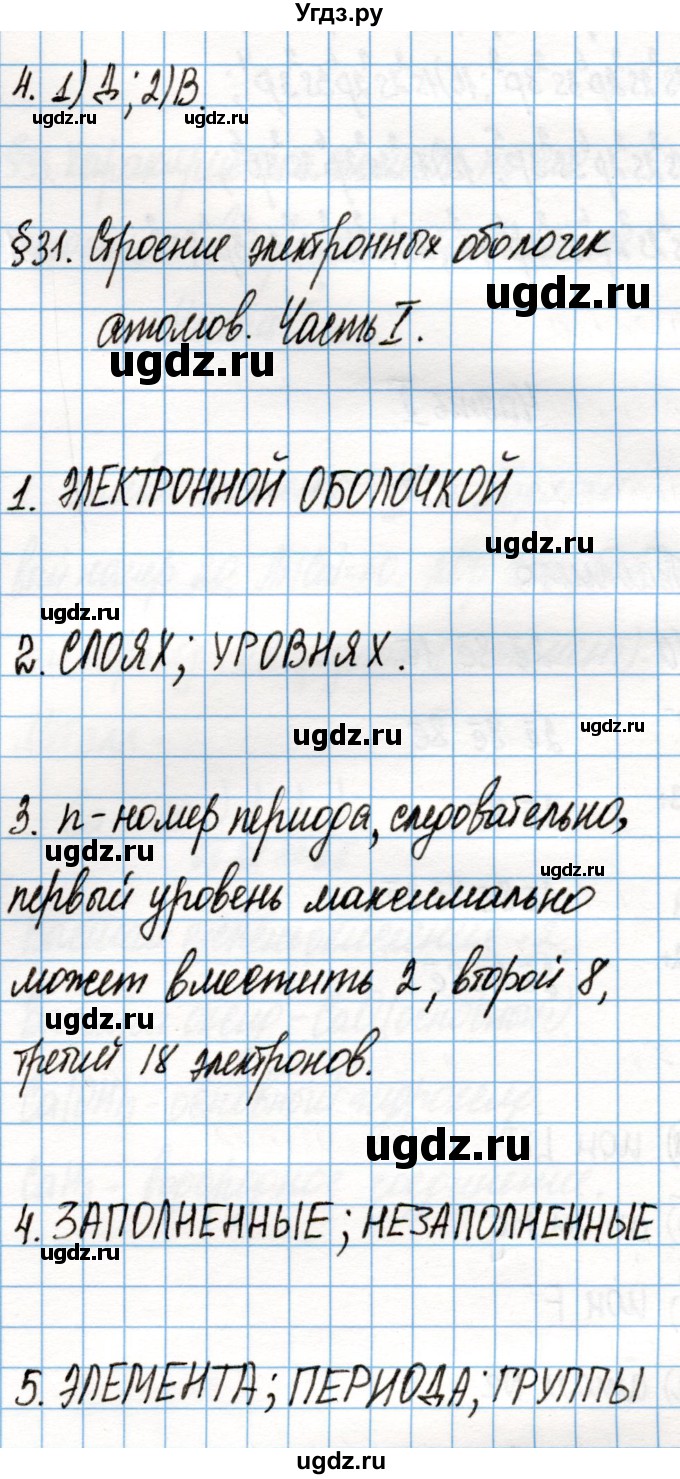 Угдз.ру
4. 1) Д; 2) В.
ugdz.ru ugdz.ru
§31. Строение электронных оболочек
ugdz.ru
атомов. Часть I.
ugdz.ru
1. ЭЛЕКТРОННОЙ ОБОЛОЧКОЙ
ugdz.ru
ugdz.ru
2. СЛОЯХ; УРОВНЯХ.
ugdz.ru ugdz.ru
3. n - номер периода, следовательно,
ugdz.ru ugdz.ru
первый уровень максимально
может вместить 2, второй 8,
ugdz.ru
третий 18 электронов.
ugdz.ru
4. ЗАПОЛНЕННЫЕ; НЕЗАПОЛНЕННЫЕ
ugdz.ru
5. ЭЛЕМЕНТА; ПЕРИОДА; ГРУППЫ
ugdz.ru